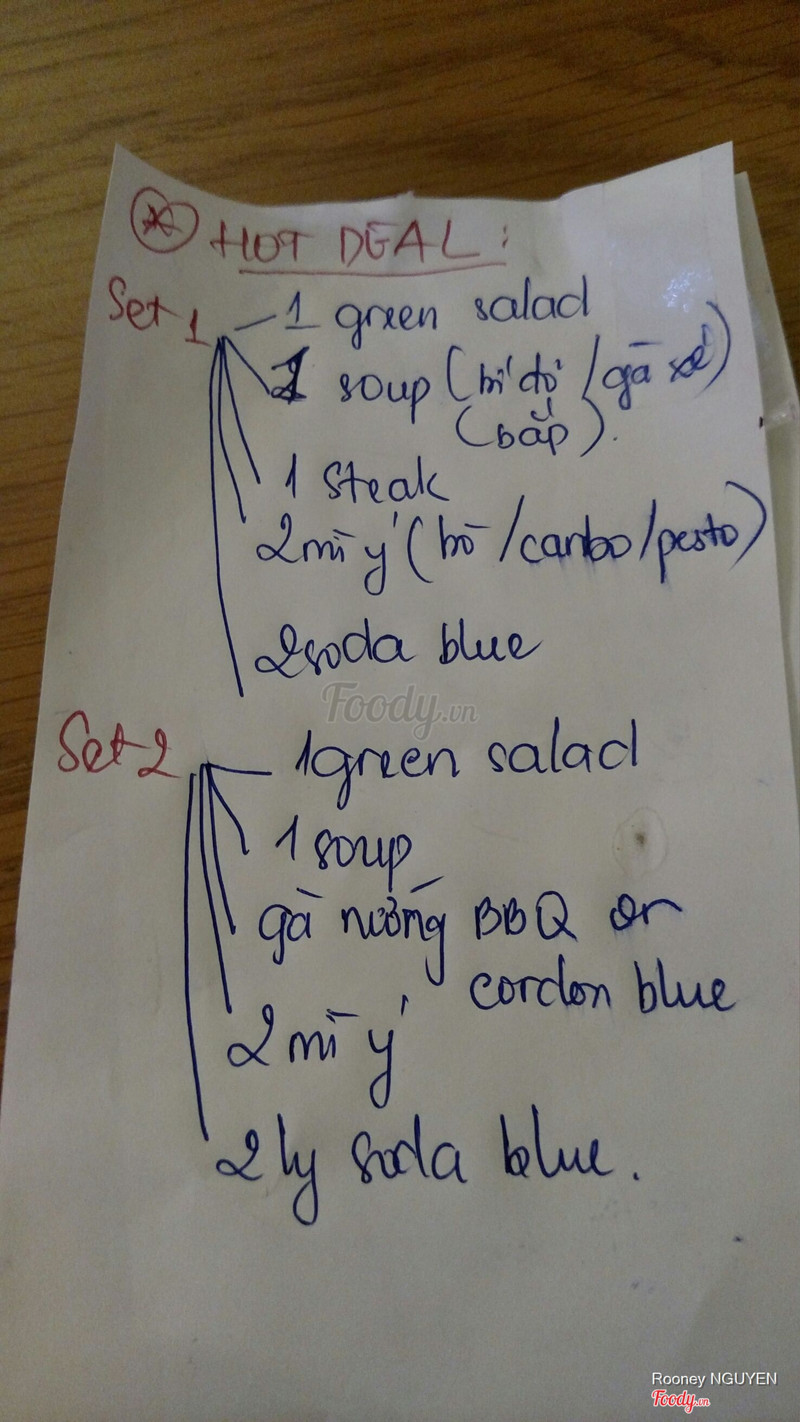 * HOT DEAL:
Set 1
1 green salad
1 soup (bí đỏ / gà xé)
(bắp).
1 steak
2 mì ý (bò / canbo / pesto)
2 soda blue
Foody.vn
Set 2
1 green salad
1 soup
gà nướng BBQ or
cordon blue
2 mì ý
2 ly soda blue.
Rooney NGUYEN
Foody.vn